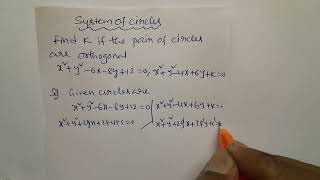 System of circles
Find K if the pair of circles
are orthogonal
x²+y²-6x-8y+12=0, x²+y²-4x+6y+k=0
Given circles are
x²+y²-6x-8y+12=0 | x²+y²-4x+6y+k=0
x²+y²+2gx+2fy+c=0 x²+y²+2g'x+2f'y+c'=0